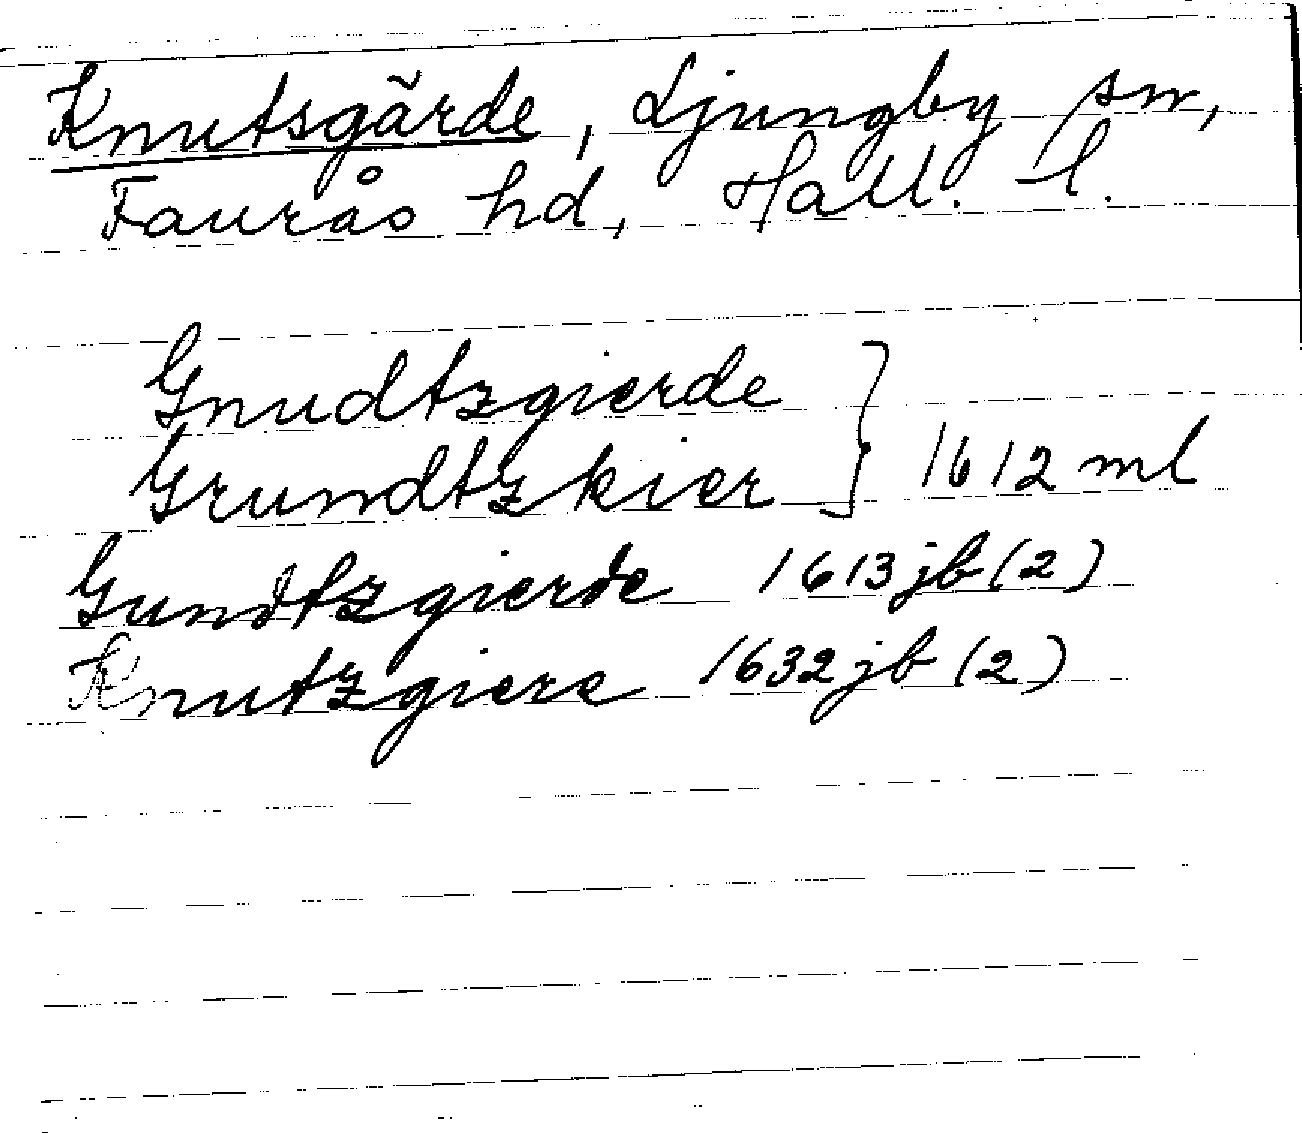 Knutsgärde, Ljungby sn,
Faurås hd, Hall. l.
Gnudtzgierde
Grundtzkier } 1612 ml
Gundtzgierde 1613 jb (2)
Knutzgiere 1632 jb (2)